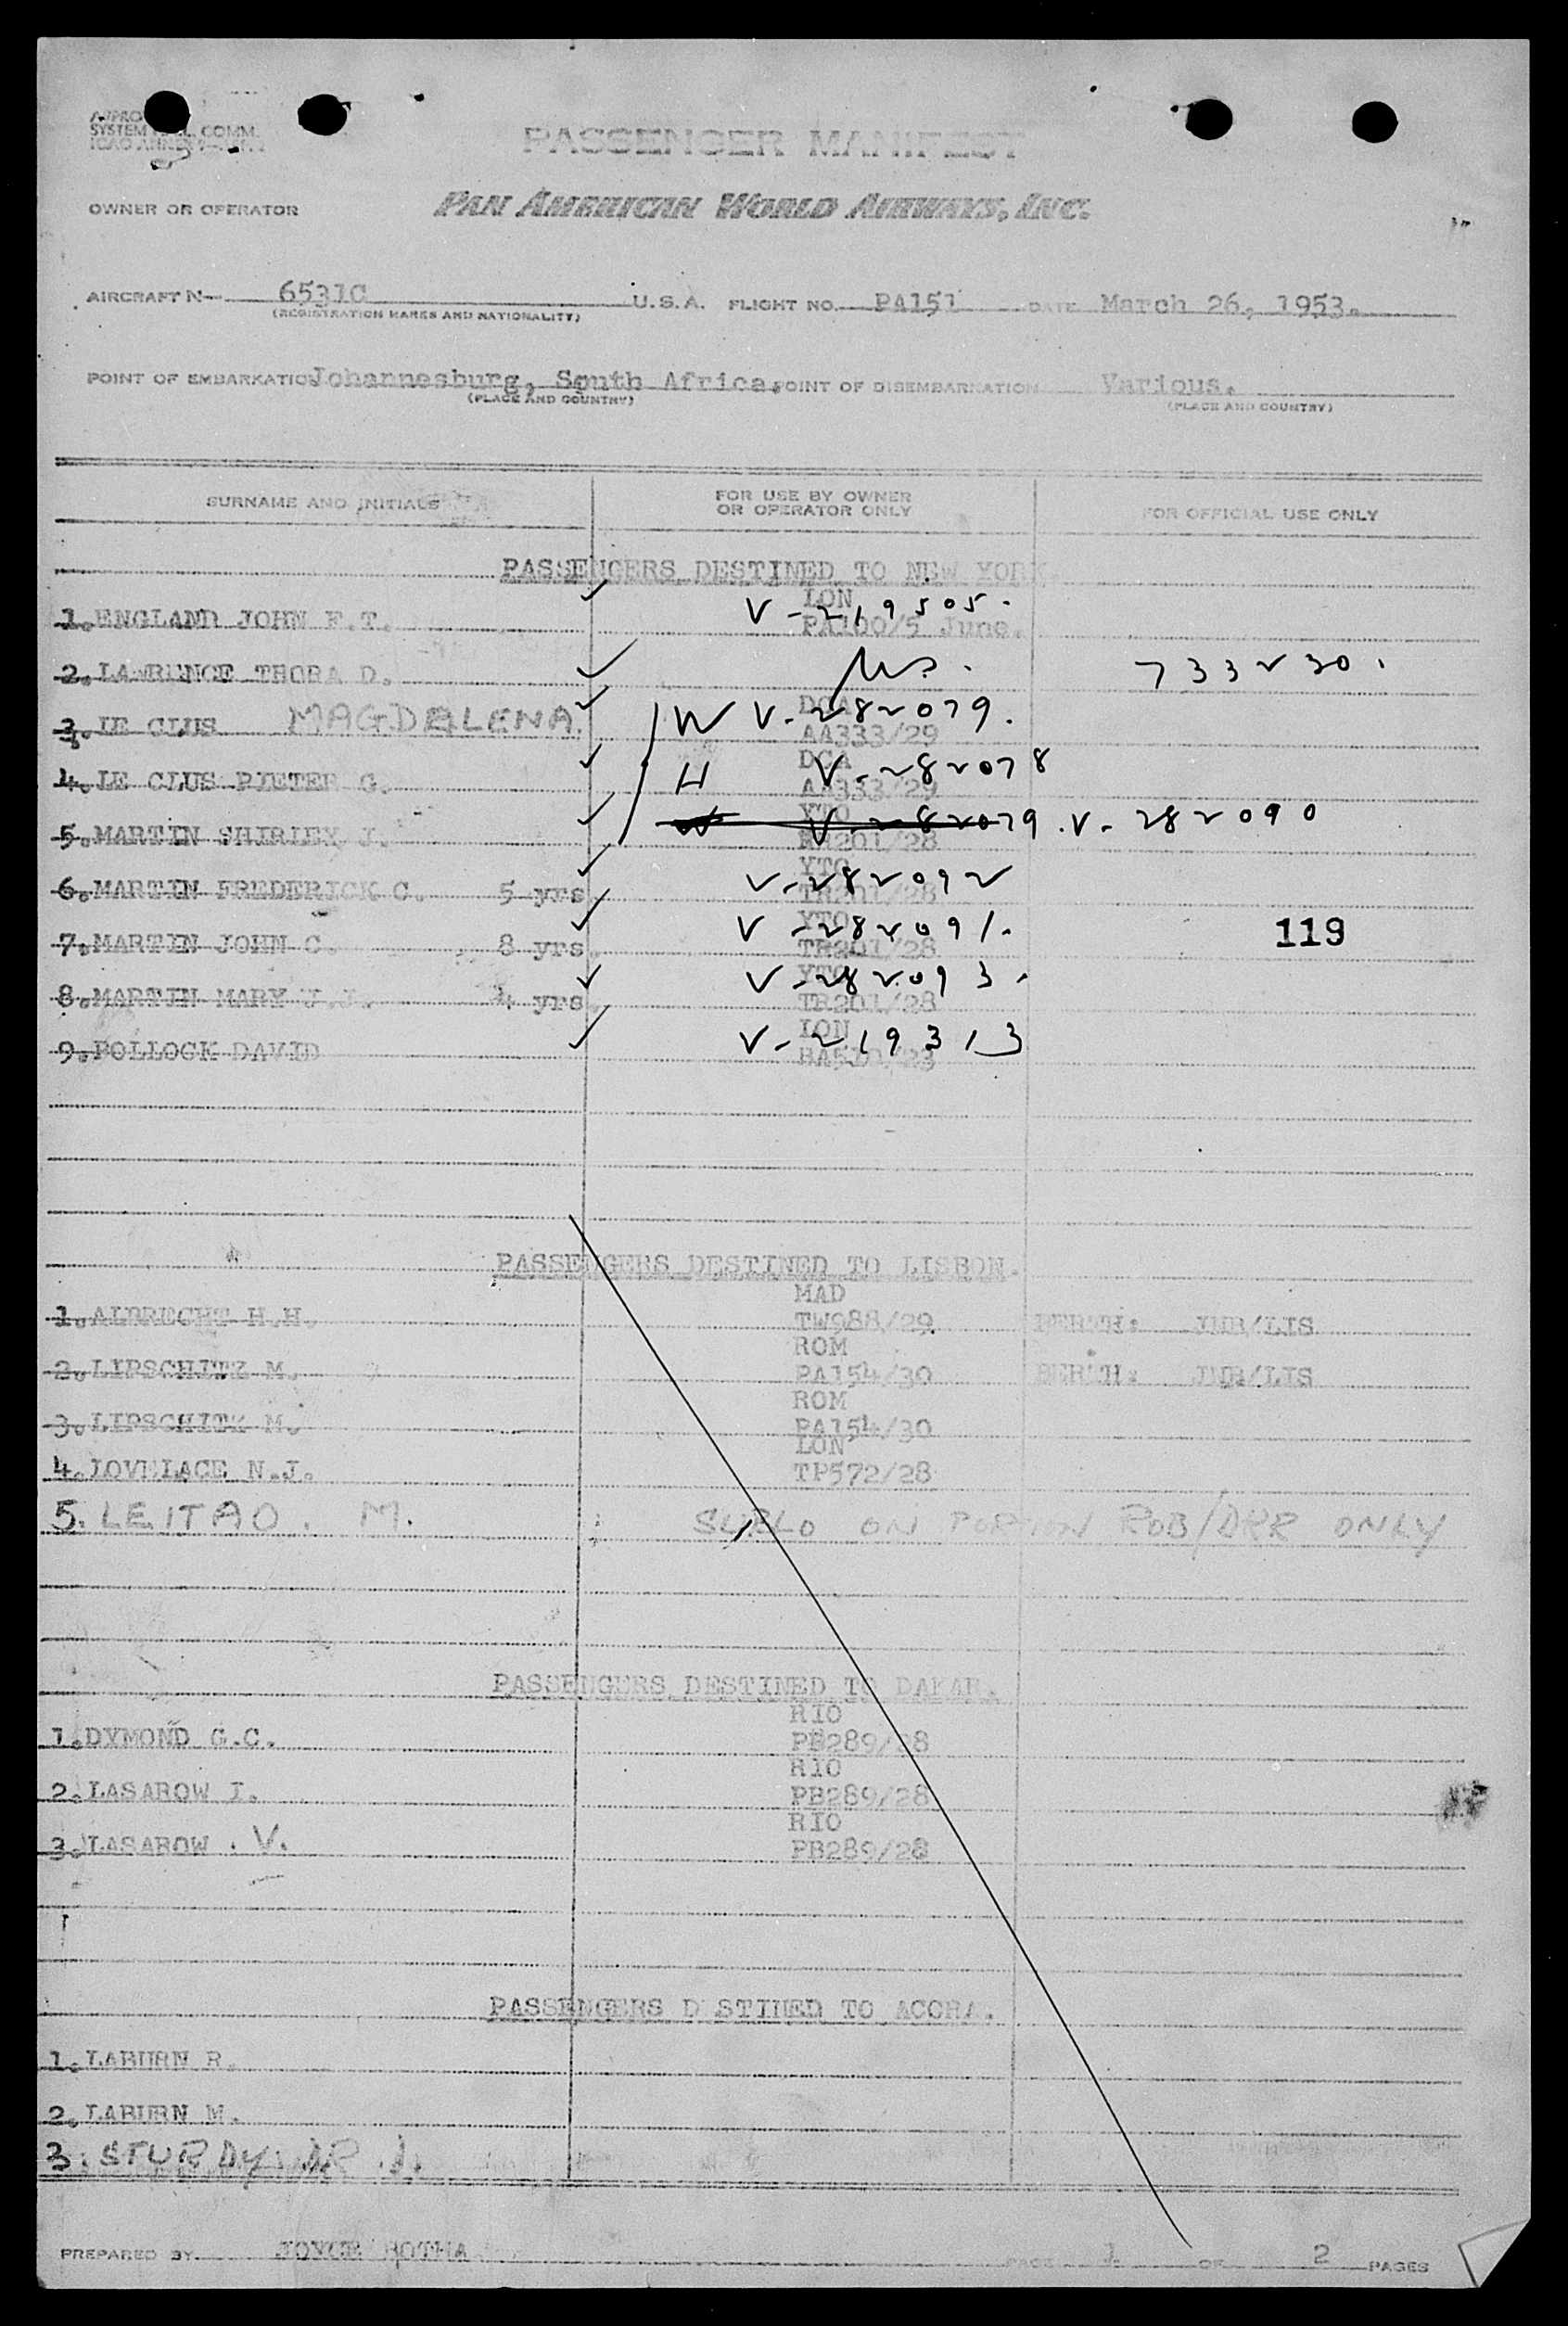 PASSENGER MANIFEST
OWNER OR OPERATOR PAN AMERICAN WORLD AIRWAYS, INC.
AIRCRAFT N- 6531C U.S.A. FLIGHT NO. PA151 DATE March 26, 1953.
(REGISTRATION MARKS AND NATIONALITY)
POINT OF EMBARKATION Johannesburg, South Africa. POINT OF DISEMBARKATION Various.
(PLACE AND COUNTRY) (PLACE AND COUNTRY)
SURNAME AND INITIALS FOR USE BY OWNER OR OPERATOR ONLY FOR OFFICIAL USE ONLY
PASSENGERS DESTINED TO NEW YORK
LON
1. ENGLAND JOHN F.T. ✓ V-219505. PA100/5 June.
2. LAWRENCE THORA D. ✓ 733230.
DCA
3. LE CLUS MAGDALENA. ✓ W V-282079. AA333/29
DCA
4. LE CLUS PIETER G. ✓ H V-282078 AA333/29
YTO
5. MARTIN SHIRLEY J. ✓ W V-282079. V-282090 TR201/28
YTO
6. MARTIN FREDERICK C. 5 yrs. ✓ V-282092 TR201/28
YTO
7. MARTIN JOHN C. 8 yrs. ✓ V-282091. TR201/28 119
YTO
8. MARTIN MARY J.J. 4 yrs. ✓ V-282093. TR201/28
LON
9. POLLOCK DAVID ✓ V-219313 BA570/23
PASSENGERS DESTINED TO LISBON.
MAD
1. ALBRECHT H.H. TW988/29 BERTH: JNB/LIS
ROM
2. LIPSCHITZ M. PA154/30 BERTH: JNB/LIS
ROM
3. LIPSCHITZ M. PA154/30
LON
4. LOVELACE N.J. TP572/28
5. LEITAO. M. SUBLO ON PORTION ROB/DKR ONLY
PASSENGERS DESTINED TO DAKAR.
RIO
1. DYMOND G.C. PB289/28
RIO
2. LASAROW I. PB289/28
RIO
3. LASAROW. V. PB289/28
PASSENGERS D STINED TO ACCRA.
1. LABURN R.
2. LABURN M.
3. STURDY DR
PREPARED BY JOYCE BOTHA PAGE 1 OF 2 PAGES